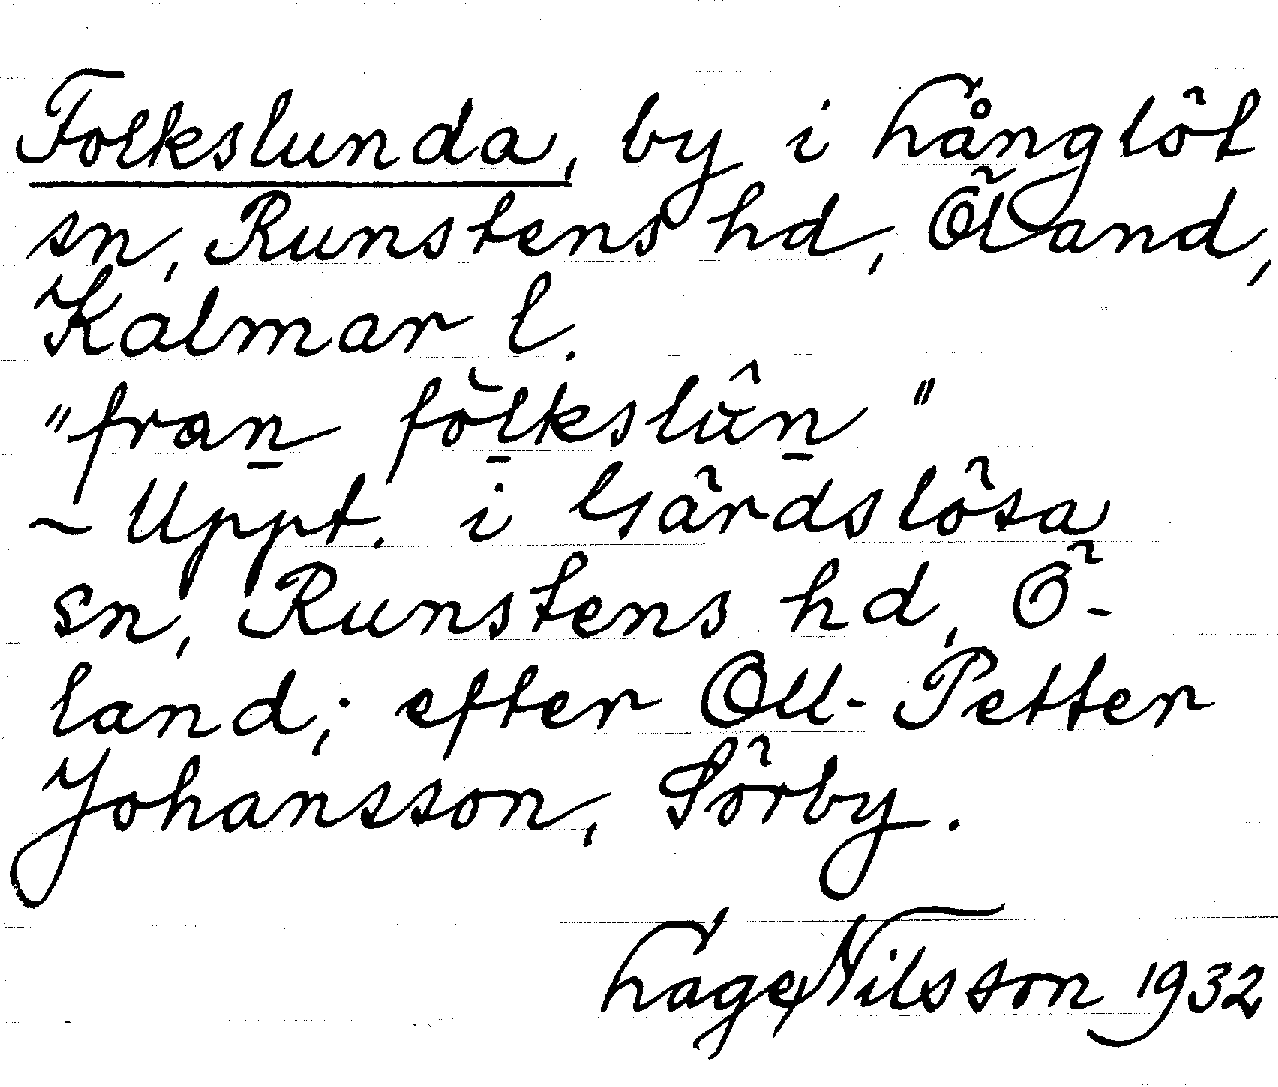 Folkslunda, by i Långlöt
sn, Runstens hd, Öland,
Kalmar l.
"fran fölkslün"
~ Uppt. i Gärdslösa
sn, Runstens hd, Ö-
land; efter Oll-Petter
Johansson, Sörby.
Lage Nilsson 1932